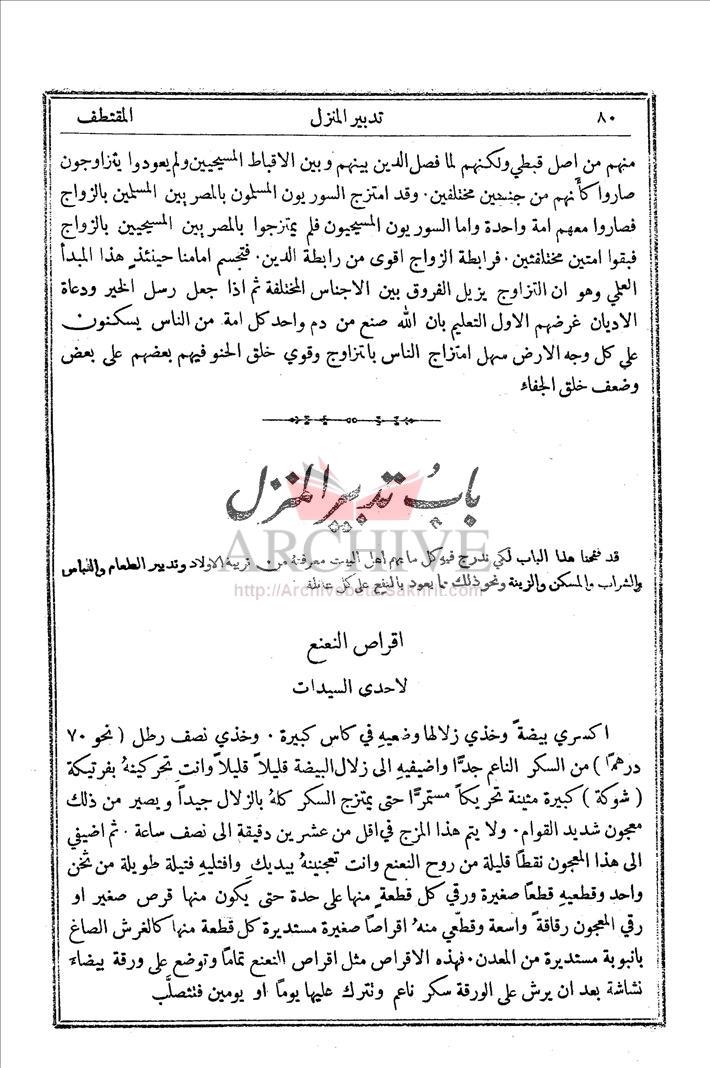 ٨٠ تدبير المنزل المقتطف
منهم من اصل قبطي ولكنهم لما فصل الدين بينهم وبين الاقباط المسيحيين ولم يعودوا يتزاوجون
صاروا كأنهم من جنسين مختلفين . وقد امتزج السوريون المسلمون بالمصريين المسلمين بالزواج
فصاروا معهم امة واحدة واما السوريون المسيحيون فلم يمتزجوا بالمصريين المسيحيين بالزواج
فبقوا امتين مختلفتين . فرابطة الزواج اقوى من رابطة الدين . فتجسم امامنا حينئذٍ هذا المبدأ
العلمي وهو ان التزاوج يزيل الفروق بين الاجناس المختلفة ثم اذا جعل رسل الخير ودعاة
الاديان غرضهم الاول التعليم بان الله صنع من دم واحد كل امة من الناس يسكنون
على كل وجه الارض سهل امتزاج الناس بالتزاوج وقوي خلق الحنو فيهم بعضهم على بعض
وضعف خلق الجفاء
باب تدبير المنزل
ARCHIVE
قد فتحنا هذا الباب لكي ندرج فيه كل ما يهم اهل البيت معرفته من تربية الاولاد وتدبير الطعام واللباس
والشراب والمسكن والزينة ونحو ذلك مما يعود بالنفع على كل عائلة
http://Archivebeta.Sakhrit.com
اقراص النعنع
لاحدى السيدات
اكسري بيضةً وخذي زلالها وضعيهِ في كاس كبيرة . وخذي نصف رطل ( نحو ٧٠
درهماً ) من السكر الناعم جدًّا واضيفيهِ الى زلال البيضة قليلاً قليلاً وانتِ تحركينهُ بفرتيكة
( شوكة ) كبيرة متينة تحريكاً مستمرًّا حتى يمتزج السكر كلهُ بالزلال جيداً ويصير من ذلك
معجون شديد القوام . ولا يتم هذا المزج في اقل من عشرين دقيقة الى نصف ساعة . ثم اضيفي
الى هذا المعجون نقطاً قليلة من روح النعنع وانت تعجنينهُ بيديكِ وافتليهِ فتيلة طويلة من ثخن
واحد وقطعيهِ قطعاً صغيرة ورقي كل قطعةٍ منها على حدة حتى يكون منها قرص صغير او
رقي المعجون رقاقةً واسعة وقطّعي منهُ اقراصاً صغيرة مستديرة كل قطعة منها كالغرش الصاغ
بانبوبة مستديرة من المعدن . فهذه الاقراص مثل اقراص النعنع تماماً وتوضع على ورقة بيضاء
نشاشة بعد ان يرش على الورقة سكر ناعم وتترك عليها يوماً او يومين فتتصلَّب